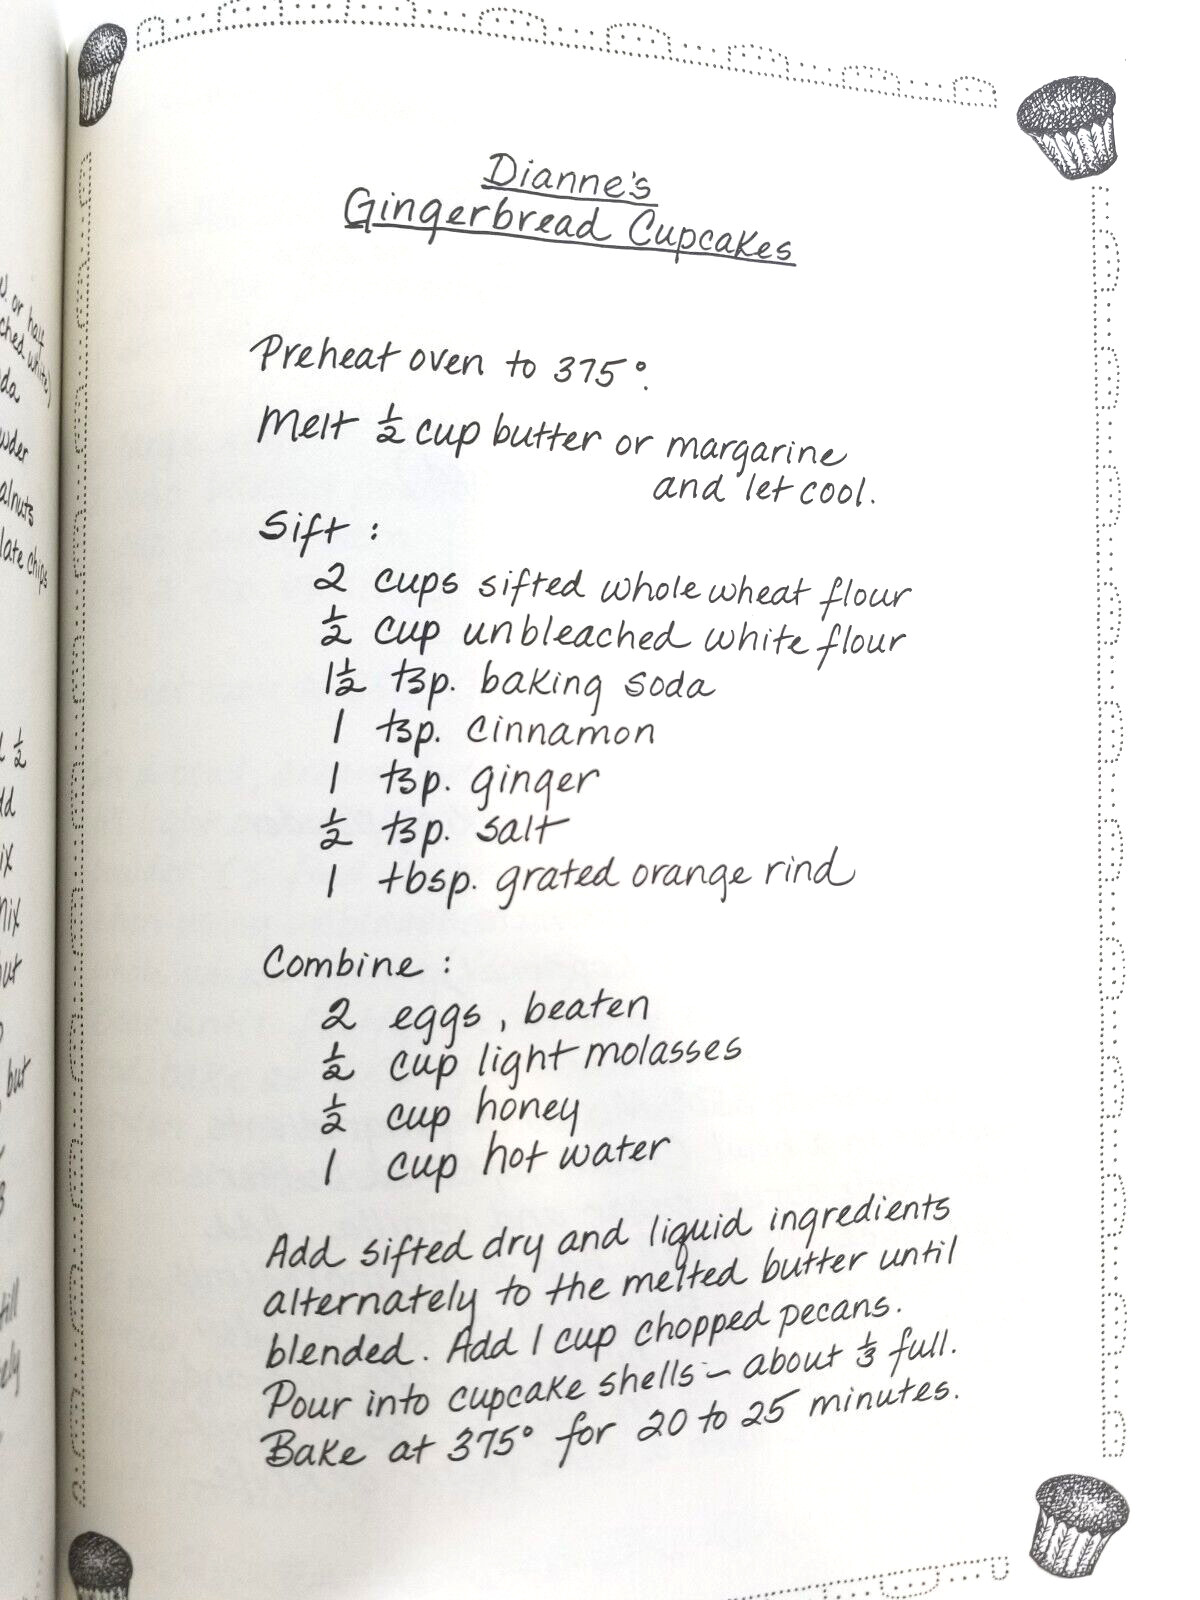 W. or half
ched white)
da
wder
alnuts
late chips
½
dd
ix
mix
but
till
Dianne's
Gingerbread Cupcakes
Preheat oven to 375°.
Melt ½ cup butter or margarine
and let cool.
Sift :
2 cups sifted whole wheat flour
½ cup unbleached white flour
1½ tsp. baking soda
1 tsp. cinnamon
1 tsp. ginger
½ tsp. salt
1 tbsp. grated orange rind
Combine :
2 eggs, beaten
½ cup light molasses
½ cup honey
1 cup hot water
Add sifted dry and liquid ingredients
alternately to the melted butter until
blended. Add 1 cup chopped pecans.
Pour into cupcake shells – about ⅓ full.
Bake at 375° for 20 to 25 minutes.